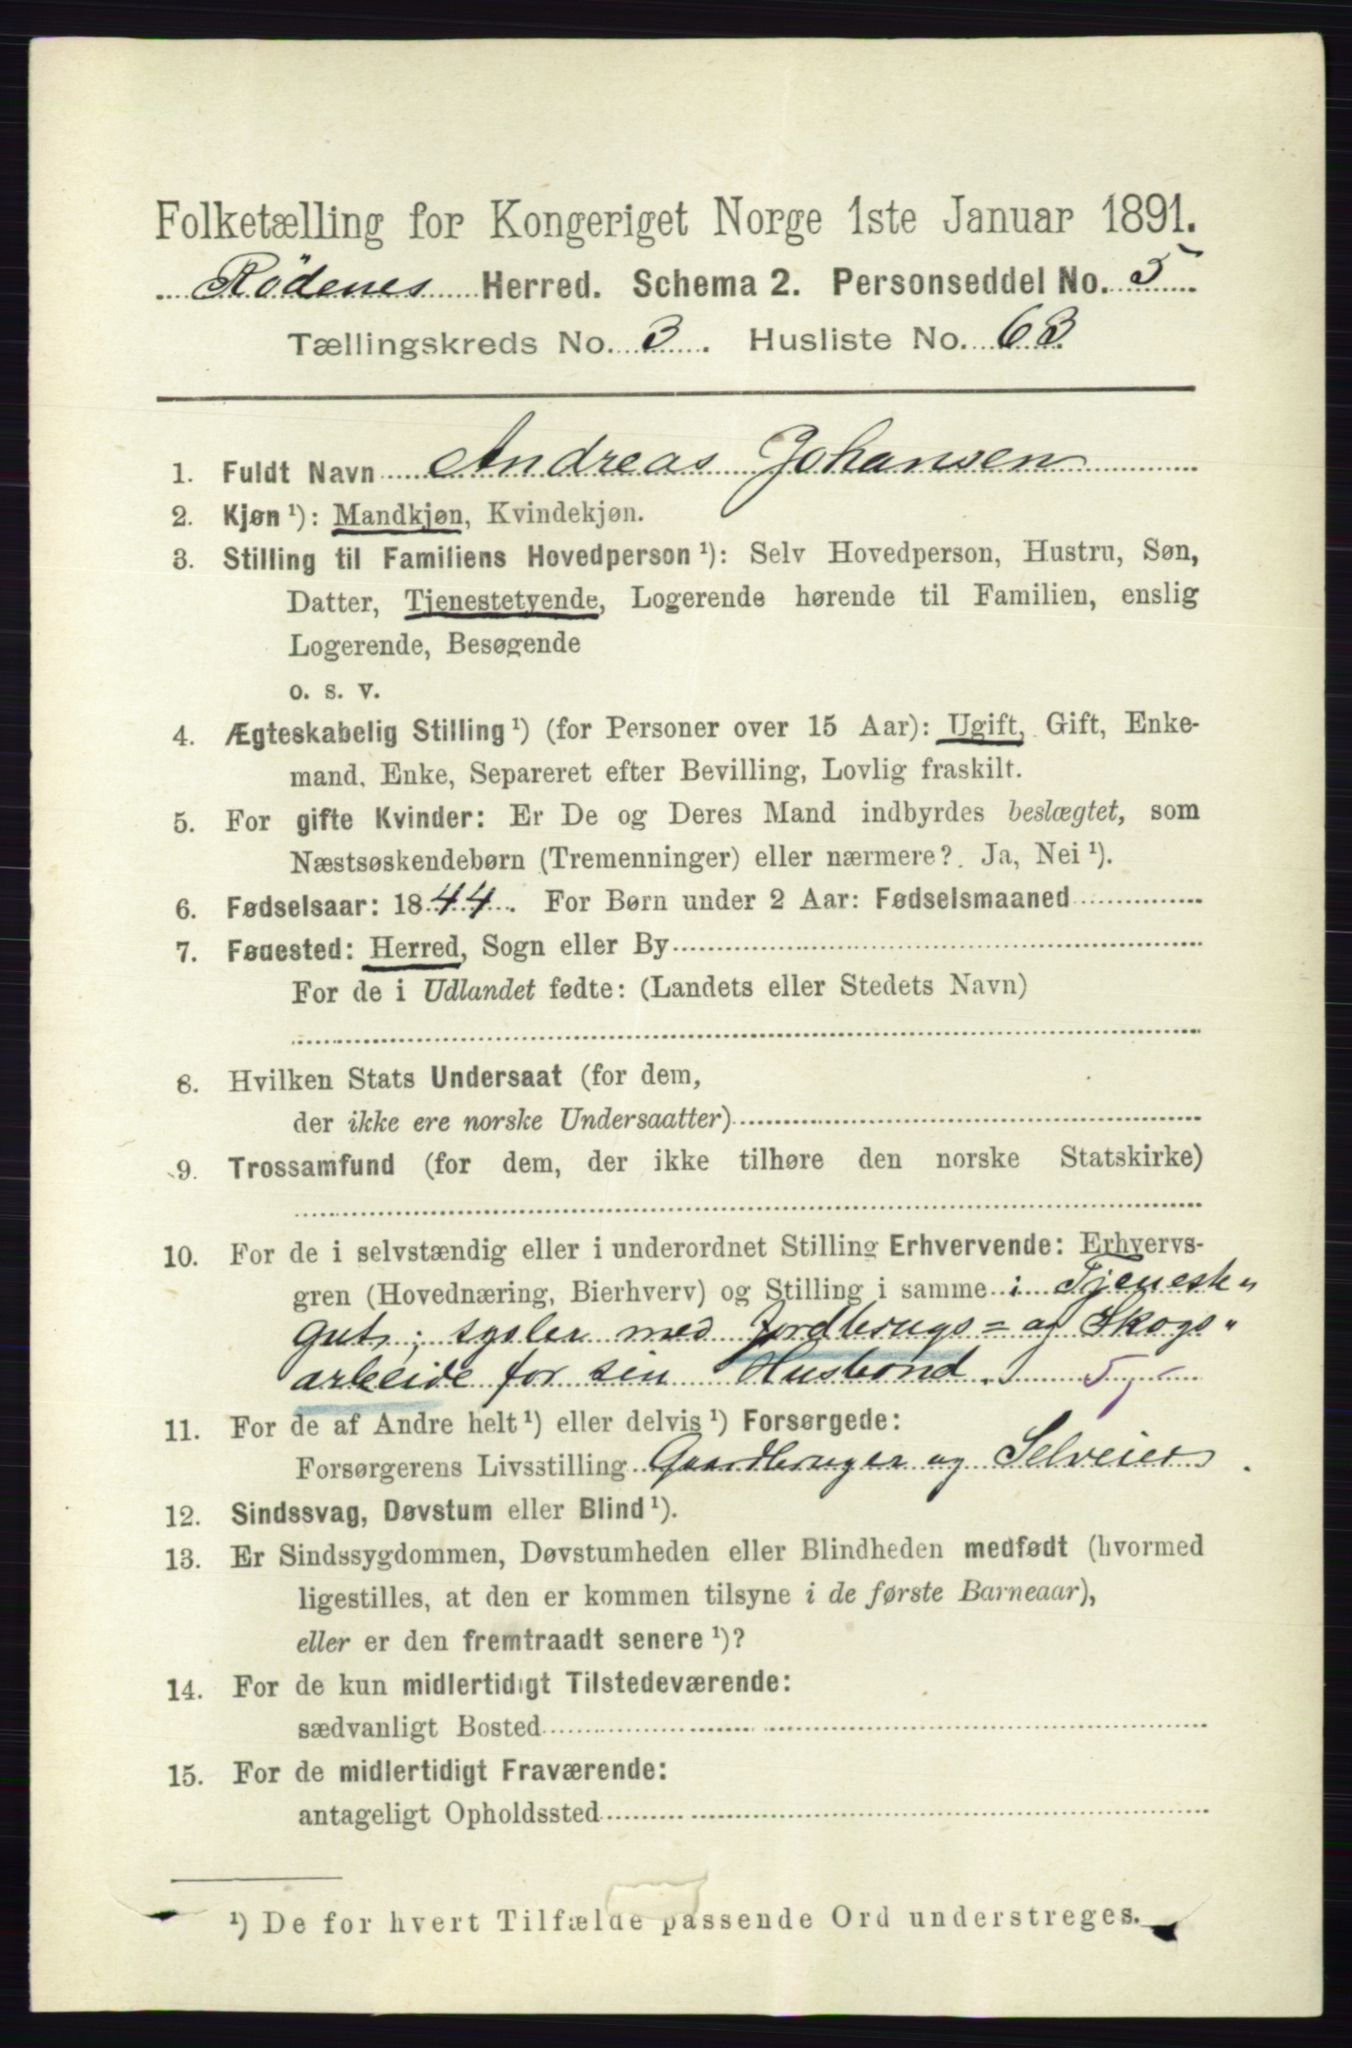 Folketælling for Kongeriget Norge 1ste Januar 1891.
Rödenes Herred. Schema 2. Personseddel No. 5
Tællingskreds No. 3. Husliste No. 63
1. Fuldt Navn Andreas Johansen
2. Kjøn ¹): Mandkjøn, Kvindekjøn.
3. Stilling til Familiens Hovedperson ¹): Selv Hovedperson, Hustru, Søn,
Datter, Tjenestetyende, Logerende hørende til Familien, enslig
Logerende, Besøgende
o. s. v.
4. Ægteskabelig Stilling ¹) (for Personer over 15 Aar): Ugift, Gift, Enke-
mand, Enke, Separeret efter Bevilling, Lovlig fraskilt.
5. For gifte Kvinder: Er De og Deres Mand indbyrdes beslægtet, som
Næstsøskendebørn (Tremenninger) eller nærmere? Ja, Nei ¹).
6. Fødselsaar: 1844. For Børn under 2 Aar: Fødselsmaaned
7. Fødested: Herred, Sogn eller By
For de i Udlandet fødte: (Landets eller Stedets Navn)
8. Hvilken Stats Undersaat (for dem,
der ikke ere norske Undersaatter)
9. Trossamfund (for dem, der ikke tilhøre den norske Statskirke)
10. For de i selvstændig eller i underordnet Stilling Erhvervende: Erhvervs-
gren (Hovednæring, Bierhverv) og Stilling i samme : Tjeneste"
Gut; sysler med Jordbrugs= og Skogs"
arbeide for sin Husbond. 5,
11. For de af Andre helt ¹) eller delvis ¹) Forsørgede:
Forsørgerens Livsstilling Gaardbruger og Selveier.
12. Sindssvag, Døvstum eller Blind ¹).
13. Er Sindssygdommen, Døvstumheden eller Blindheden medfødt (hvormed
ligestilles, at den er kommen tilsyne i de første Barneaar),
eller er den fremtraadt senere ¹)?
14. For de kun midlertidigt Tilstedeværende:
sædvanligt Bosted
15. For de midlertidigt Fraværende:
antageligt Opholdssted
¹) De for hvert Tilfælde passende Ord understreges.